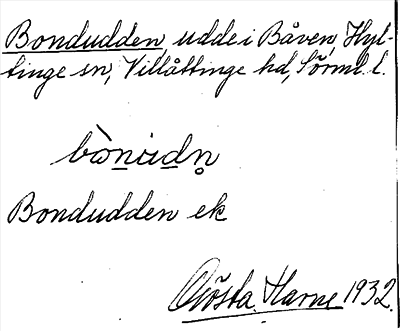 Bondudden, udde i Båven, Hyl-
tinge sn, Villåttinge hd, Sörml. l.
Bondudden ek
Gösta Harne 1932.